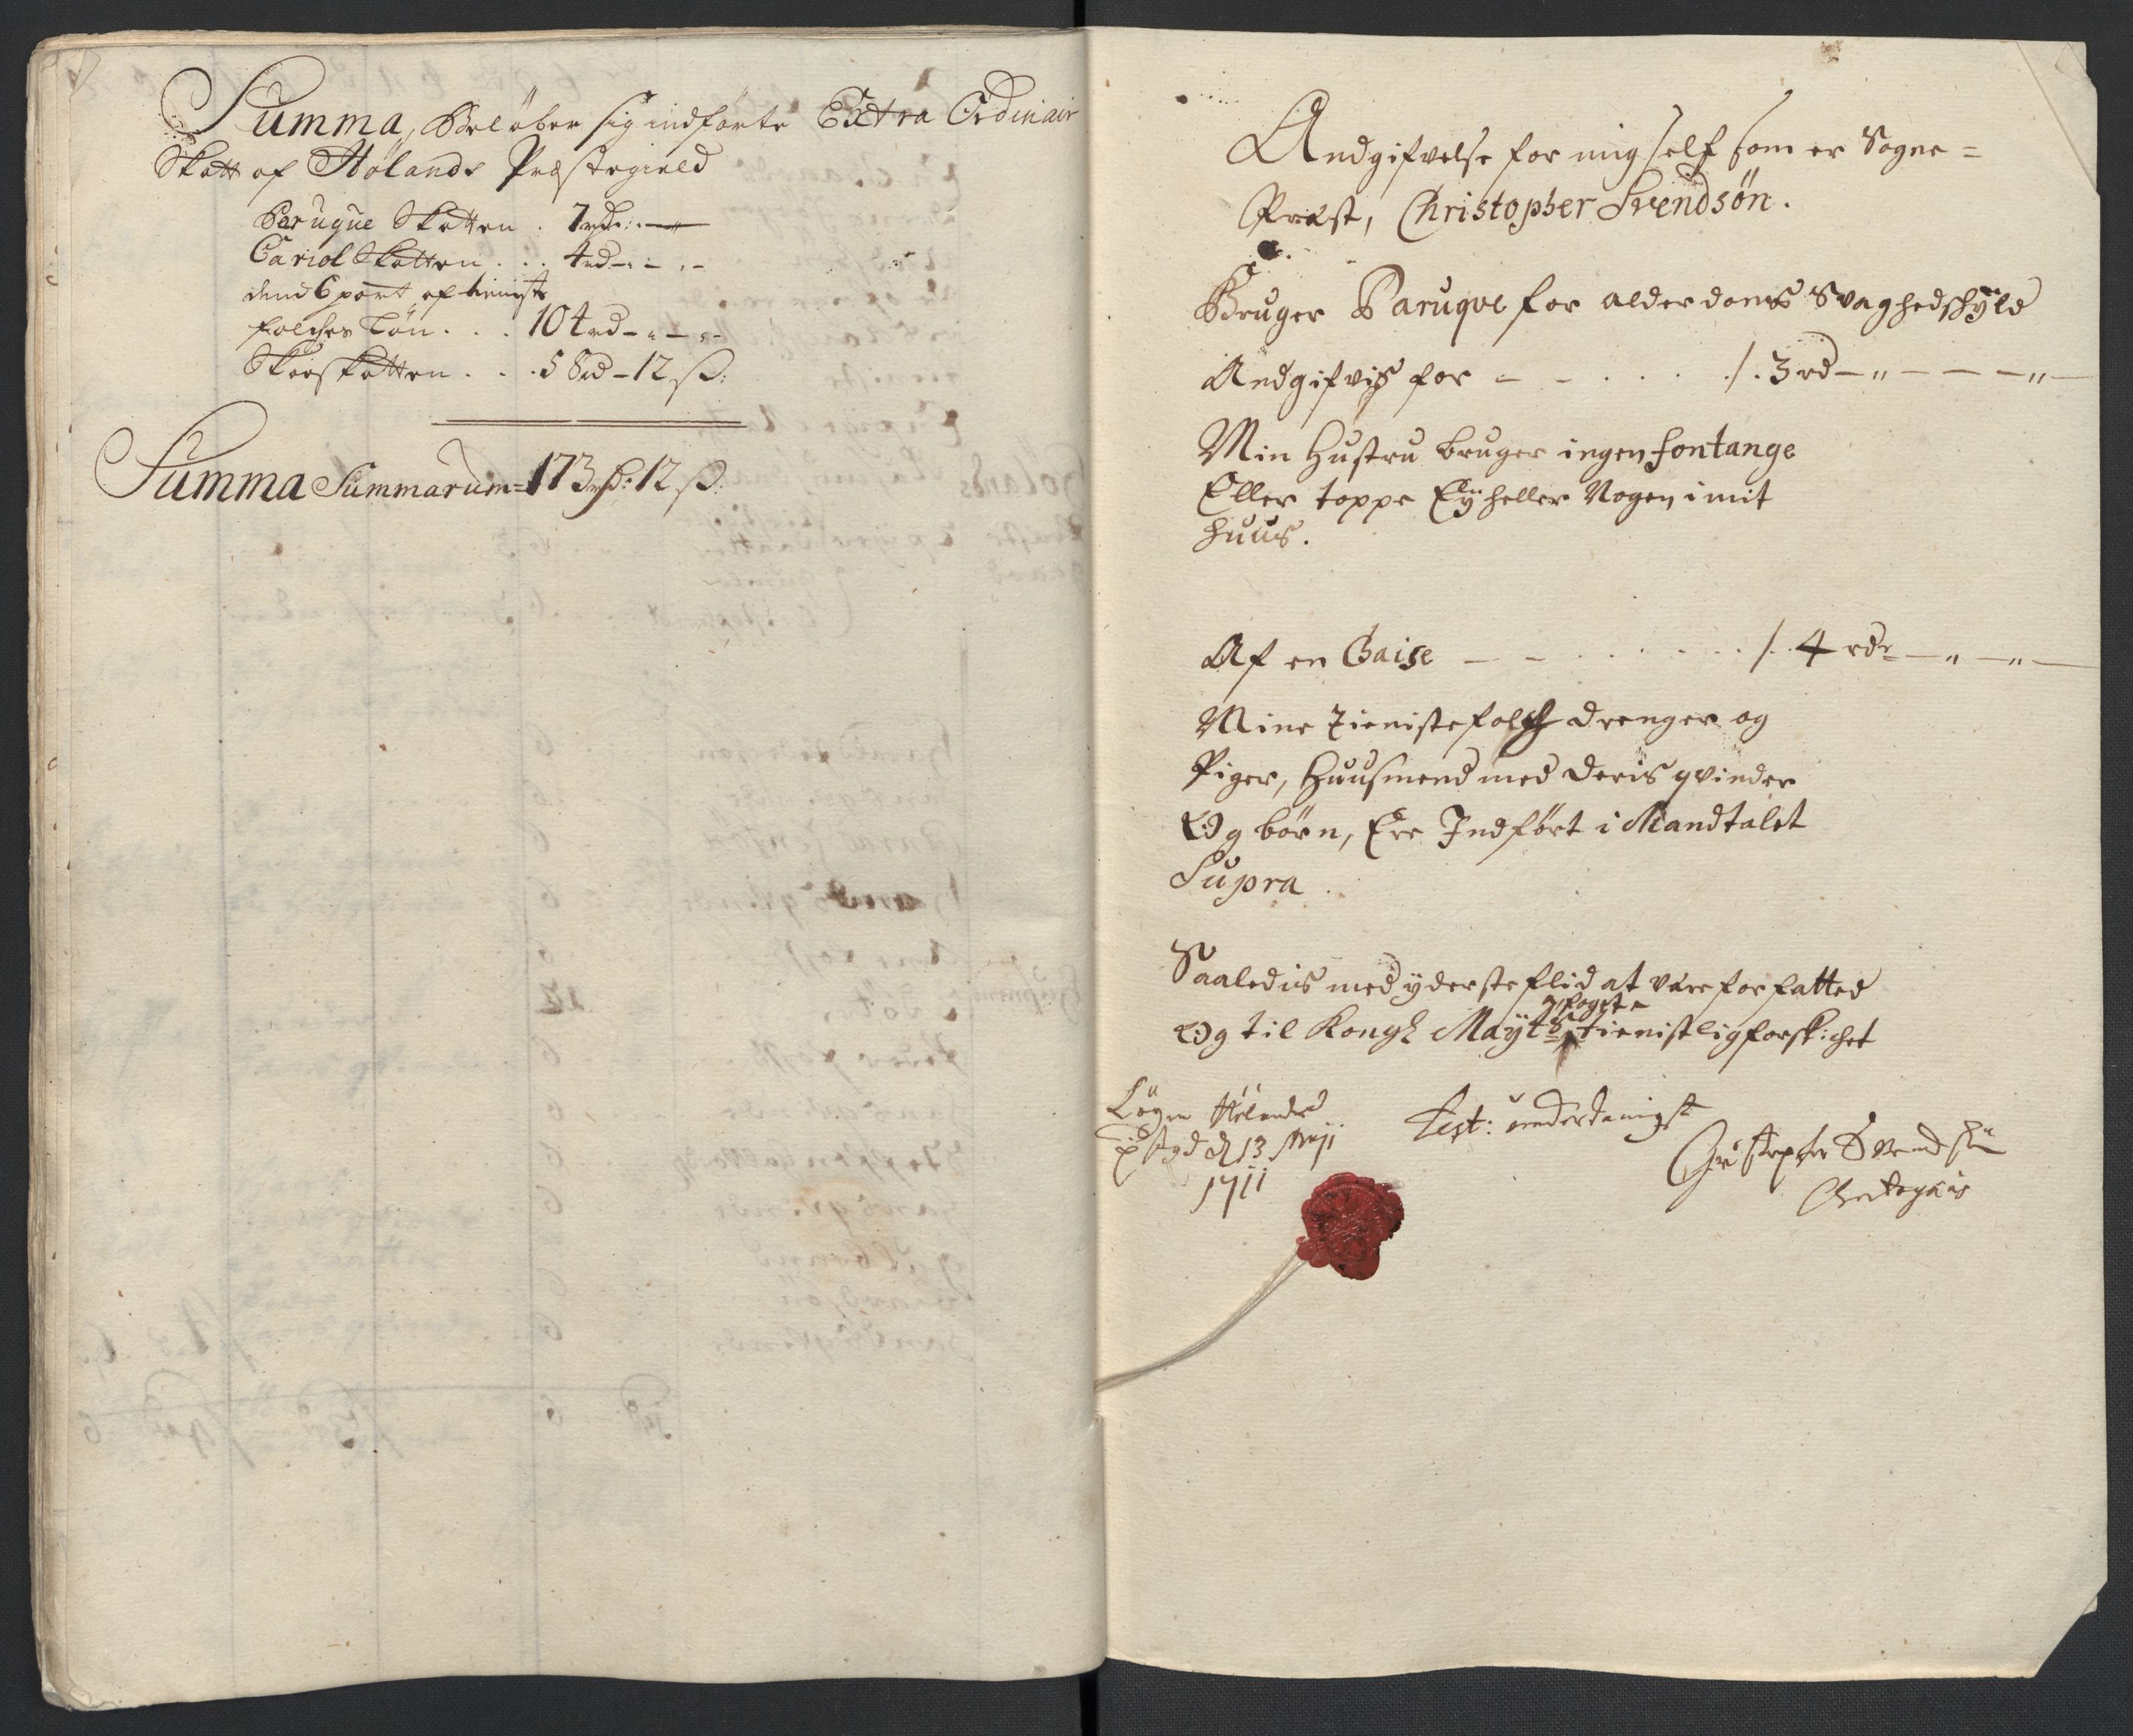 Summa, Beløber sig indførte Extra Ordinair
Skatt af Hølands Præstegield
Peruque Skatten . 7 rdr: - "
Cariol Skatten . . . 4 rd - " - " -
dend 6 part af tienste
folches Løn . . . 104 rd - " - " -
Skoeskatten . . . 58 rd - 12 ß:
Summa Summarum = 173 rdr: 12 ß:
Andgifvelse for mig self som er Sogne =
Præst, Christopher Svendsøn.
Bruger Paruqve for alderdoms Svaghed skyld
Andgifvis for - - . . . . /. 3 rd - " - - - " -
Min Hustru bruger ingen fontange
Eller toppe Eÿ heller Nogen i mit
huus.
Af en Chaise - - . . . . . . /. 4 rdr - " - " -
Mine Tienistefolch drenger og
Piger, Huusmend med deris qvinder
Og børn, Ere Indført i Mandtalet
Supra .
Saaledis med yderste flid at være forfatted
fogete
Og til Kongl Maÿts tienistlig forskichet
Hølands
d 13 Maji
1711
Test: underdanigst
Christopher Svendsøn